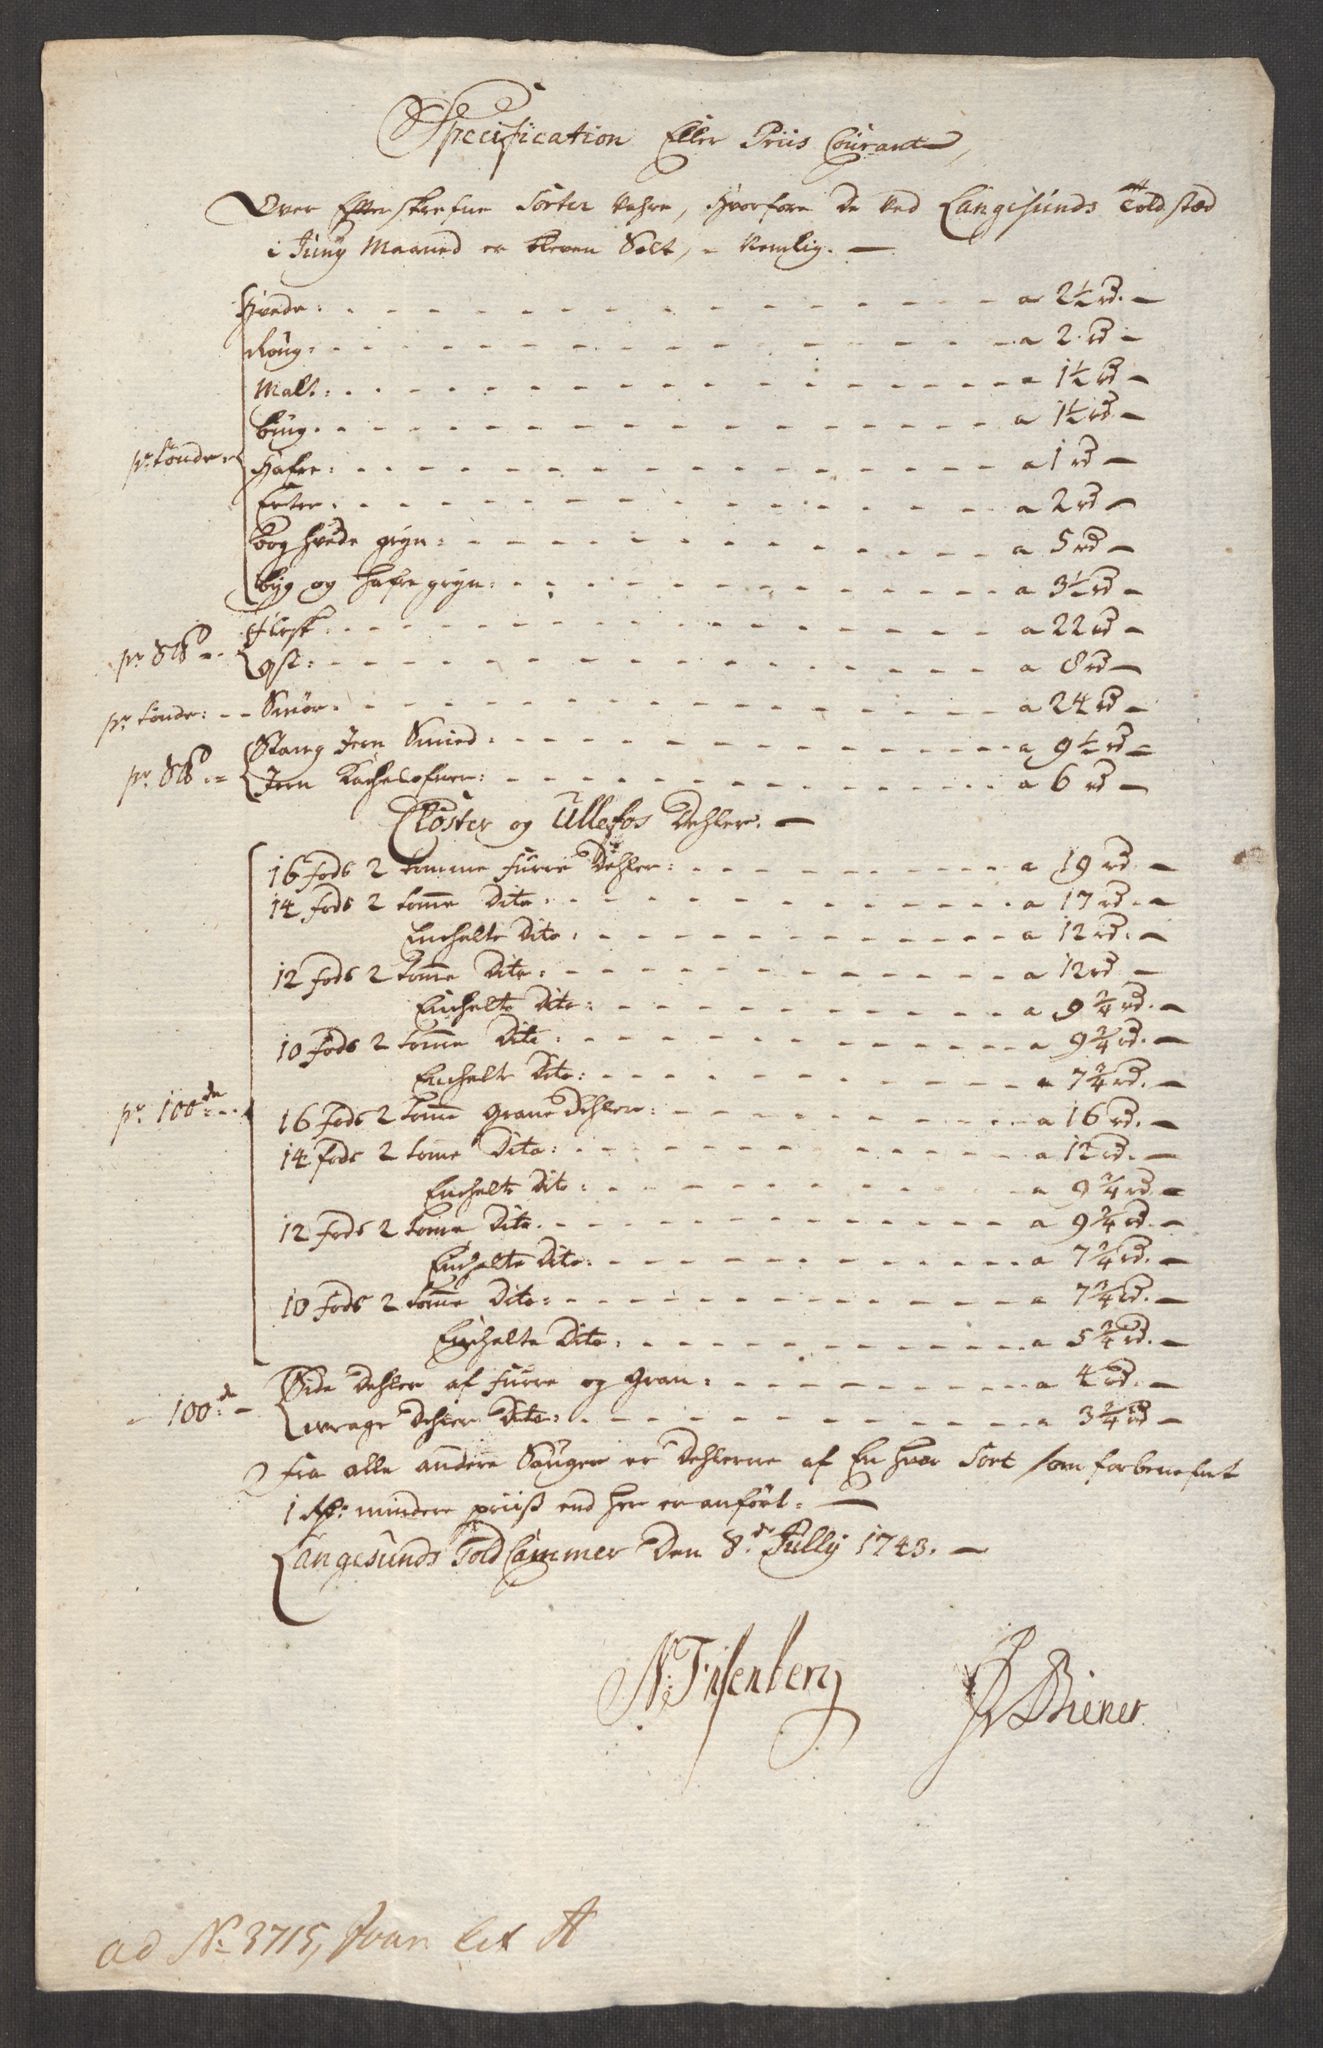 Specification Eller Priis Courant,
Over Efterskrefne Sorter Vahre, Hvorfore de ved Langesunds Toldstæd
i Juny Maaned er bleven Solt, - Nemlig. —
Hvede: a 2½ rd. —
Roug: a 2 rd —
Malt: a 1½ rd —
biug. a 1½ rd —
pr tønde: Hafre: a 1 rd —
Erter: a 2 rd —
bog hvede gryn: a 5 rd —
byg og hafre gryn: a 3½ rd —
Flesk: a 22 rd —
pr S℔ ost: a 8 rd —
pr tønde: Smør. a 24 rd —
Stang Jern Smied: a 9½ rd —
pr S℔ Jern Kachelofner: a 6 rd —
Closter og Ullefos Dehler. —
16 fods 2 tomme Furre Dehler: a 19 rd. —
14 fods 2 tome Dito: a 17 rd. —
Enchelte Dito: a 12 rd. —
12 fods 2 tome Dito: a 12 rd —
Enchelte Dito: a 9 2/4 rd. —
10 fods 2 tome Dito: a 9 2/4 rd. —
Enchelte Dito: a 7 2/4 rd. —
pr 100de 16 fods 2 tome Grane Dehler: a 16 rd. —
14 fods 2 tome Dito: a 12 rd. —
Enchelte Dito: a 9 2/4 rd —
12 fods 2 tome Dito. a 9 2/4 rd. —
Enchelte Dito: a 7 2/4 rd. —
10 fods 2 tome Dito: a 7 2/4 rd. —
Enchelte Dito: a 5 2/4 rd. —
Side Dehler af Furre og Gran: a 4 rd. —
- 100de - wrage Dehler Dito: a 3 2/4 rd —
Fra alle andre Sauger er Dehlerne af En hver Sort som forbenefnt
1 Rdr: mindere priiß end her er anført. —
Langesunds Told Cammer Den 8de Jully 1743. —
N: Frisenberg
Biener
ad No 3715, Lit A